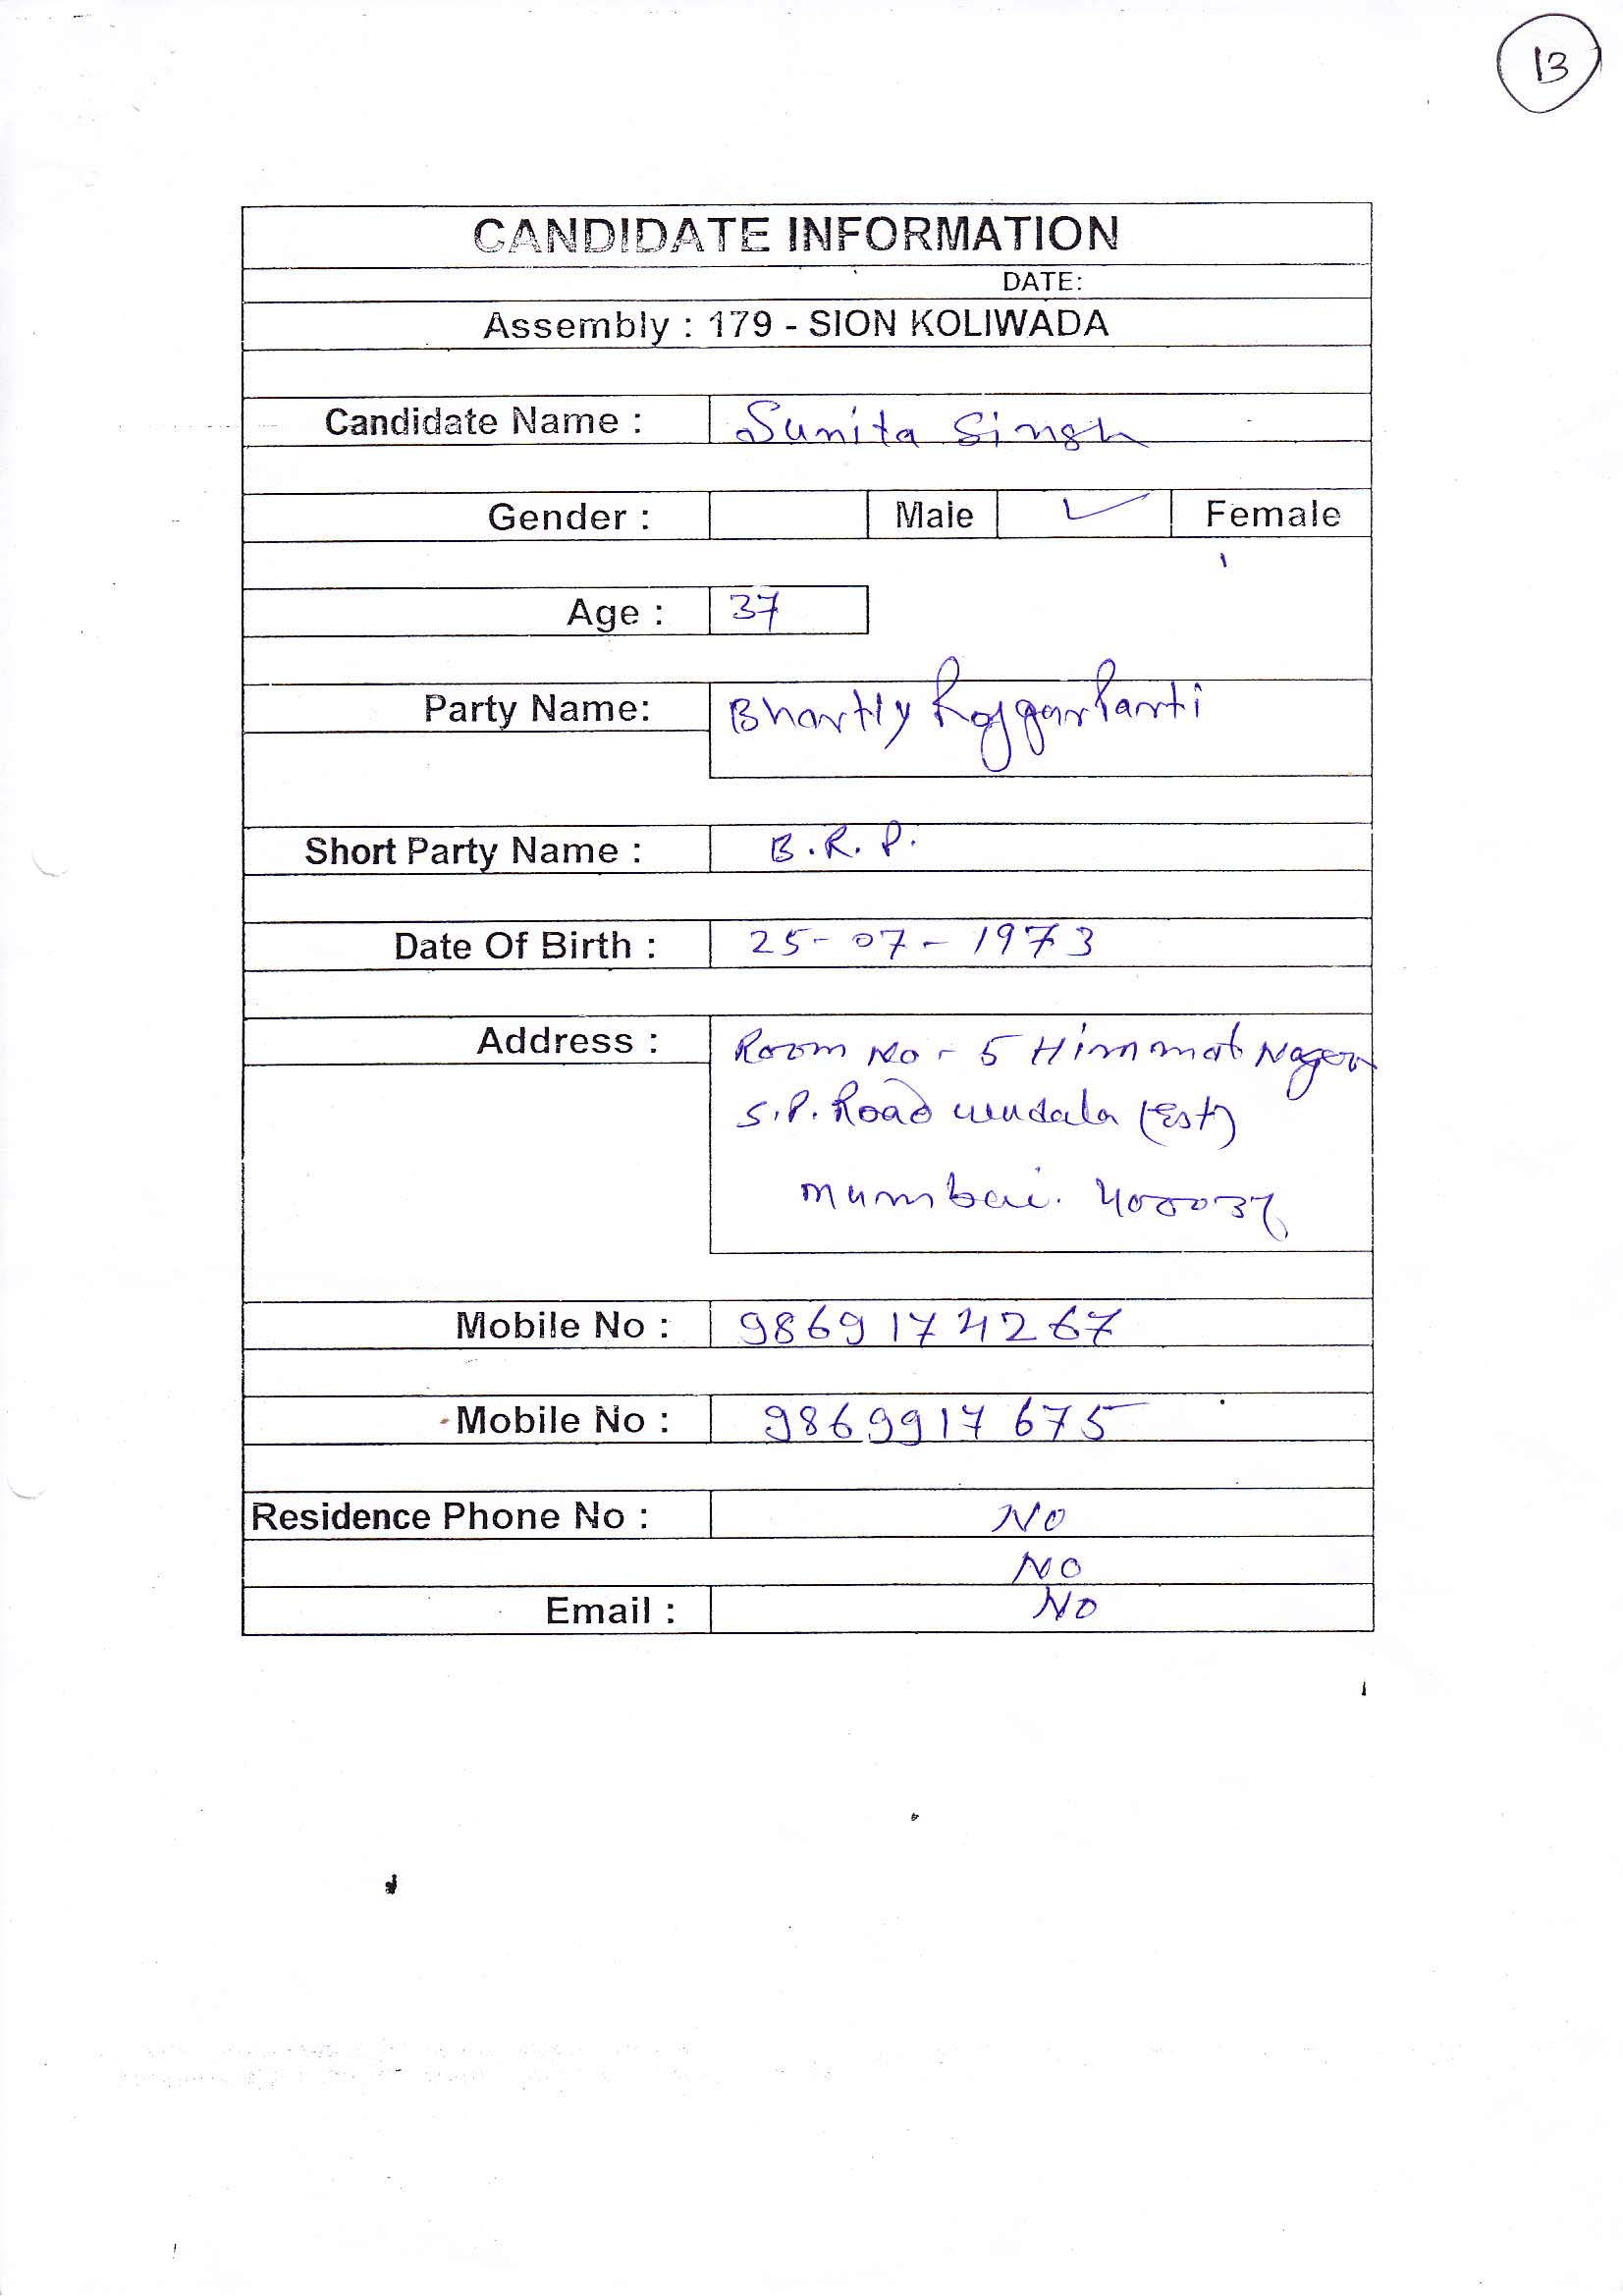 13
CANDIDATE INFORMATION
DATE:
Assembly : 179 - SION KOLIWADA
Candidate Name : Sunita Singh
Gender : Male ✓ Female
Age : 37
Party Name: Bhartiy Rojgar Parti
Short Party Name : B.R.P.
Date Of Birth : 25-07-1973
Address : Room No - 5 Himmat Nagar
S.P. Road (Est)
mumbai. 400037
Mobile No : 9869174267
Mobile No : 9869917675
Residence Phone No : No
No
Email : No